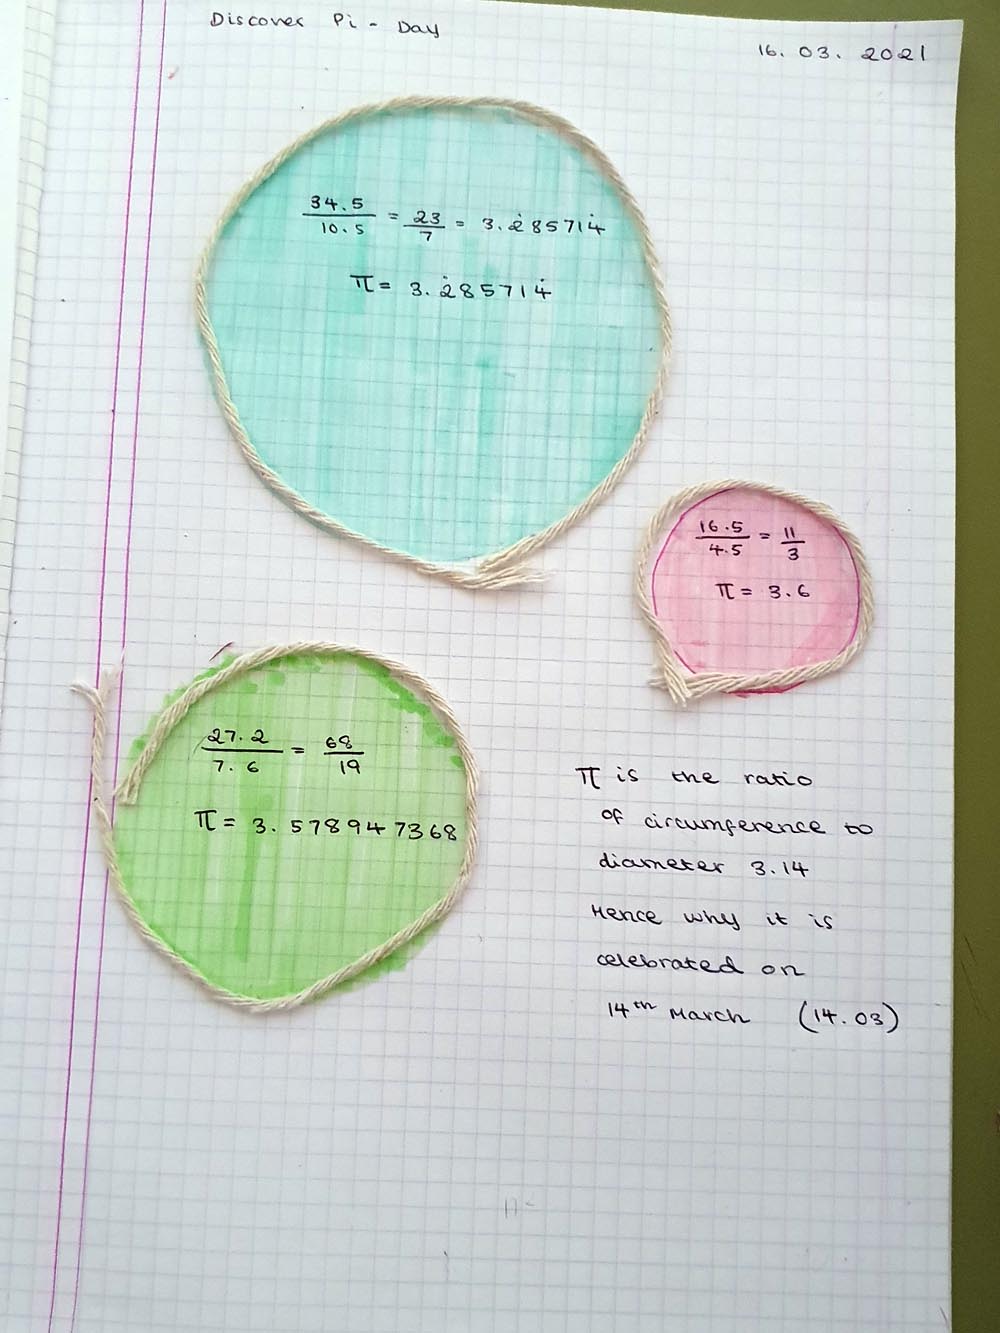 Discover Pi - Day
16. 03. 2021
34.5/10.5 = 23/7 = 3.2̇85714̇
π = 3.2̇85714̇
16.5/4.5 = 11/3
π = 3.6
27.2/7.6 = 68/19
π = 3.578947368
π is the ratio
of circumference to
diameter 3.14
Hence why it is
celebrated on
14th March (14.03)